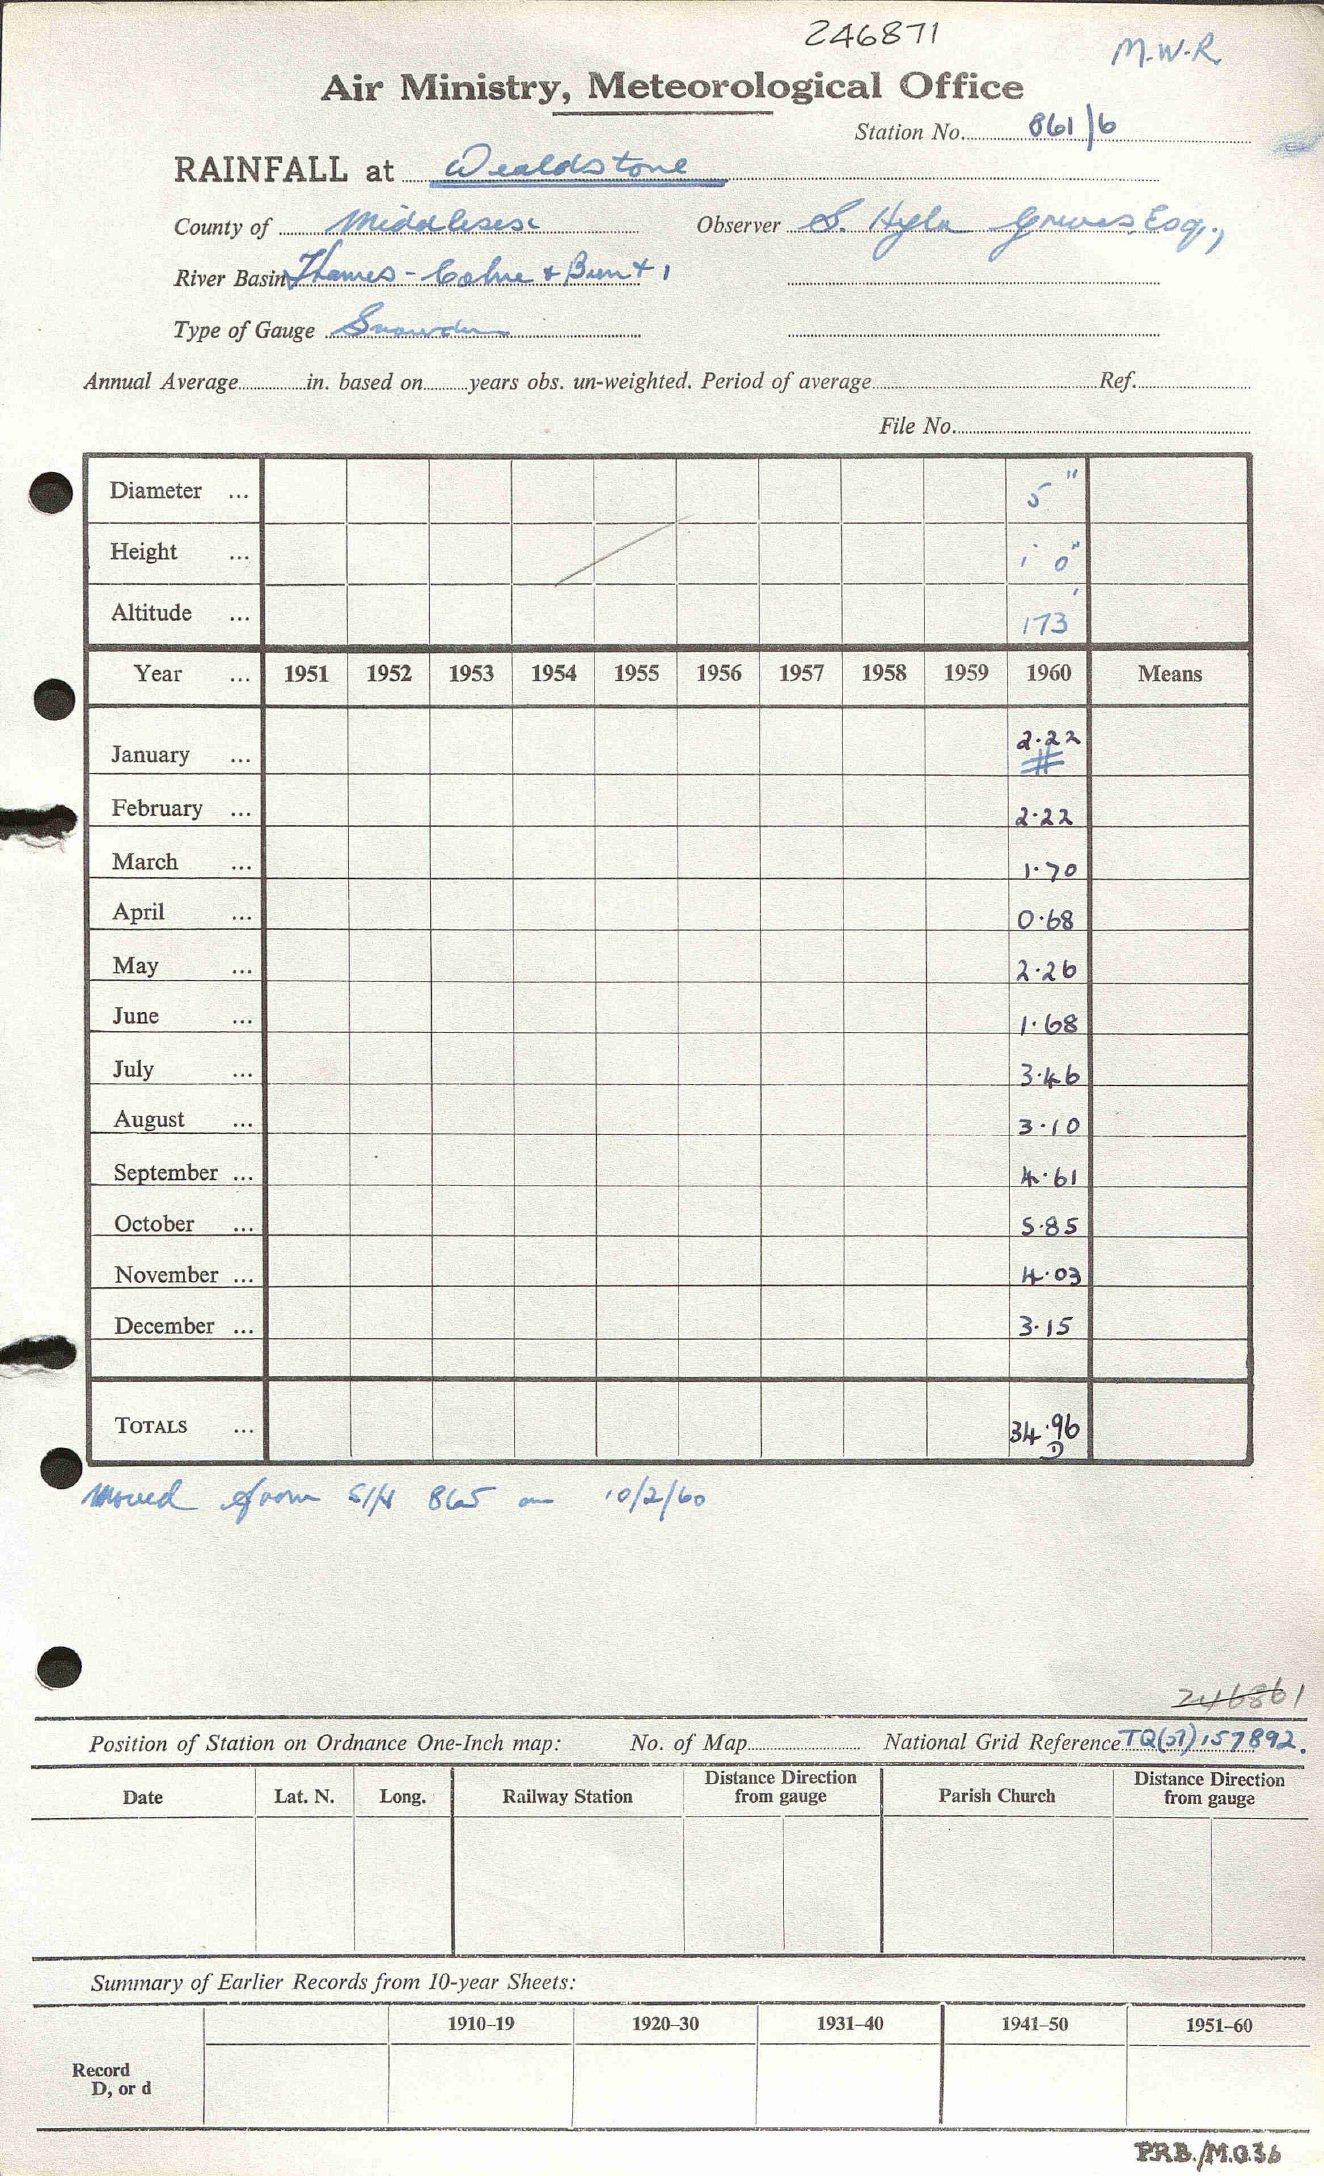 246871
M.W.R.
Air Ministry, Meteorological Office
Station No. 861/6
RAINFALL at Wealdstone
County of Middlesex Observer S. Hyla Greves, Esq.,
River Basin Thames - Colne & Brent 1
Type of Gauge Snowdon
Annual Average in. based on years obs. un-weighted. Period of average Ref.
File No.
Diameter ... 5"
Height ... 1' 0"
Altitude ... 173'
Year ... 1951 1952 1953 1954 1955 1956 1957 1958 1959 1960 Means
January ... 2.22 #
February ... 2.22
March ... 1.70
April ... 0.68
May ... 2.26
June ... 1.68
July ... 3.46
August ... 3.10
September ... 4.61
October ... 5.85
November ... 4.03
December ... 3.15
TOTALS ... 34.96
D
Moved from S/N 865 on 10/2/60
246861
Position of Station on Ordnance One-Inch map: No. of Map National Grid Reference TQ(51)157892.
Date Lat. N. Long. Railway Station Distance Direction from gauge Parish Church Distance Direction from gauge
Summary of Earlier Records from 10-year Sheets:
1910–19 1920–30 1931–40 1941–50 1951–60
Record
D, or d
P.R.B./M.O.36